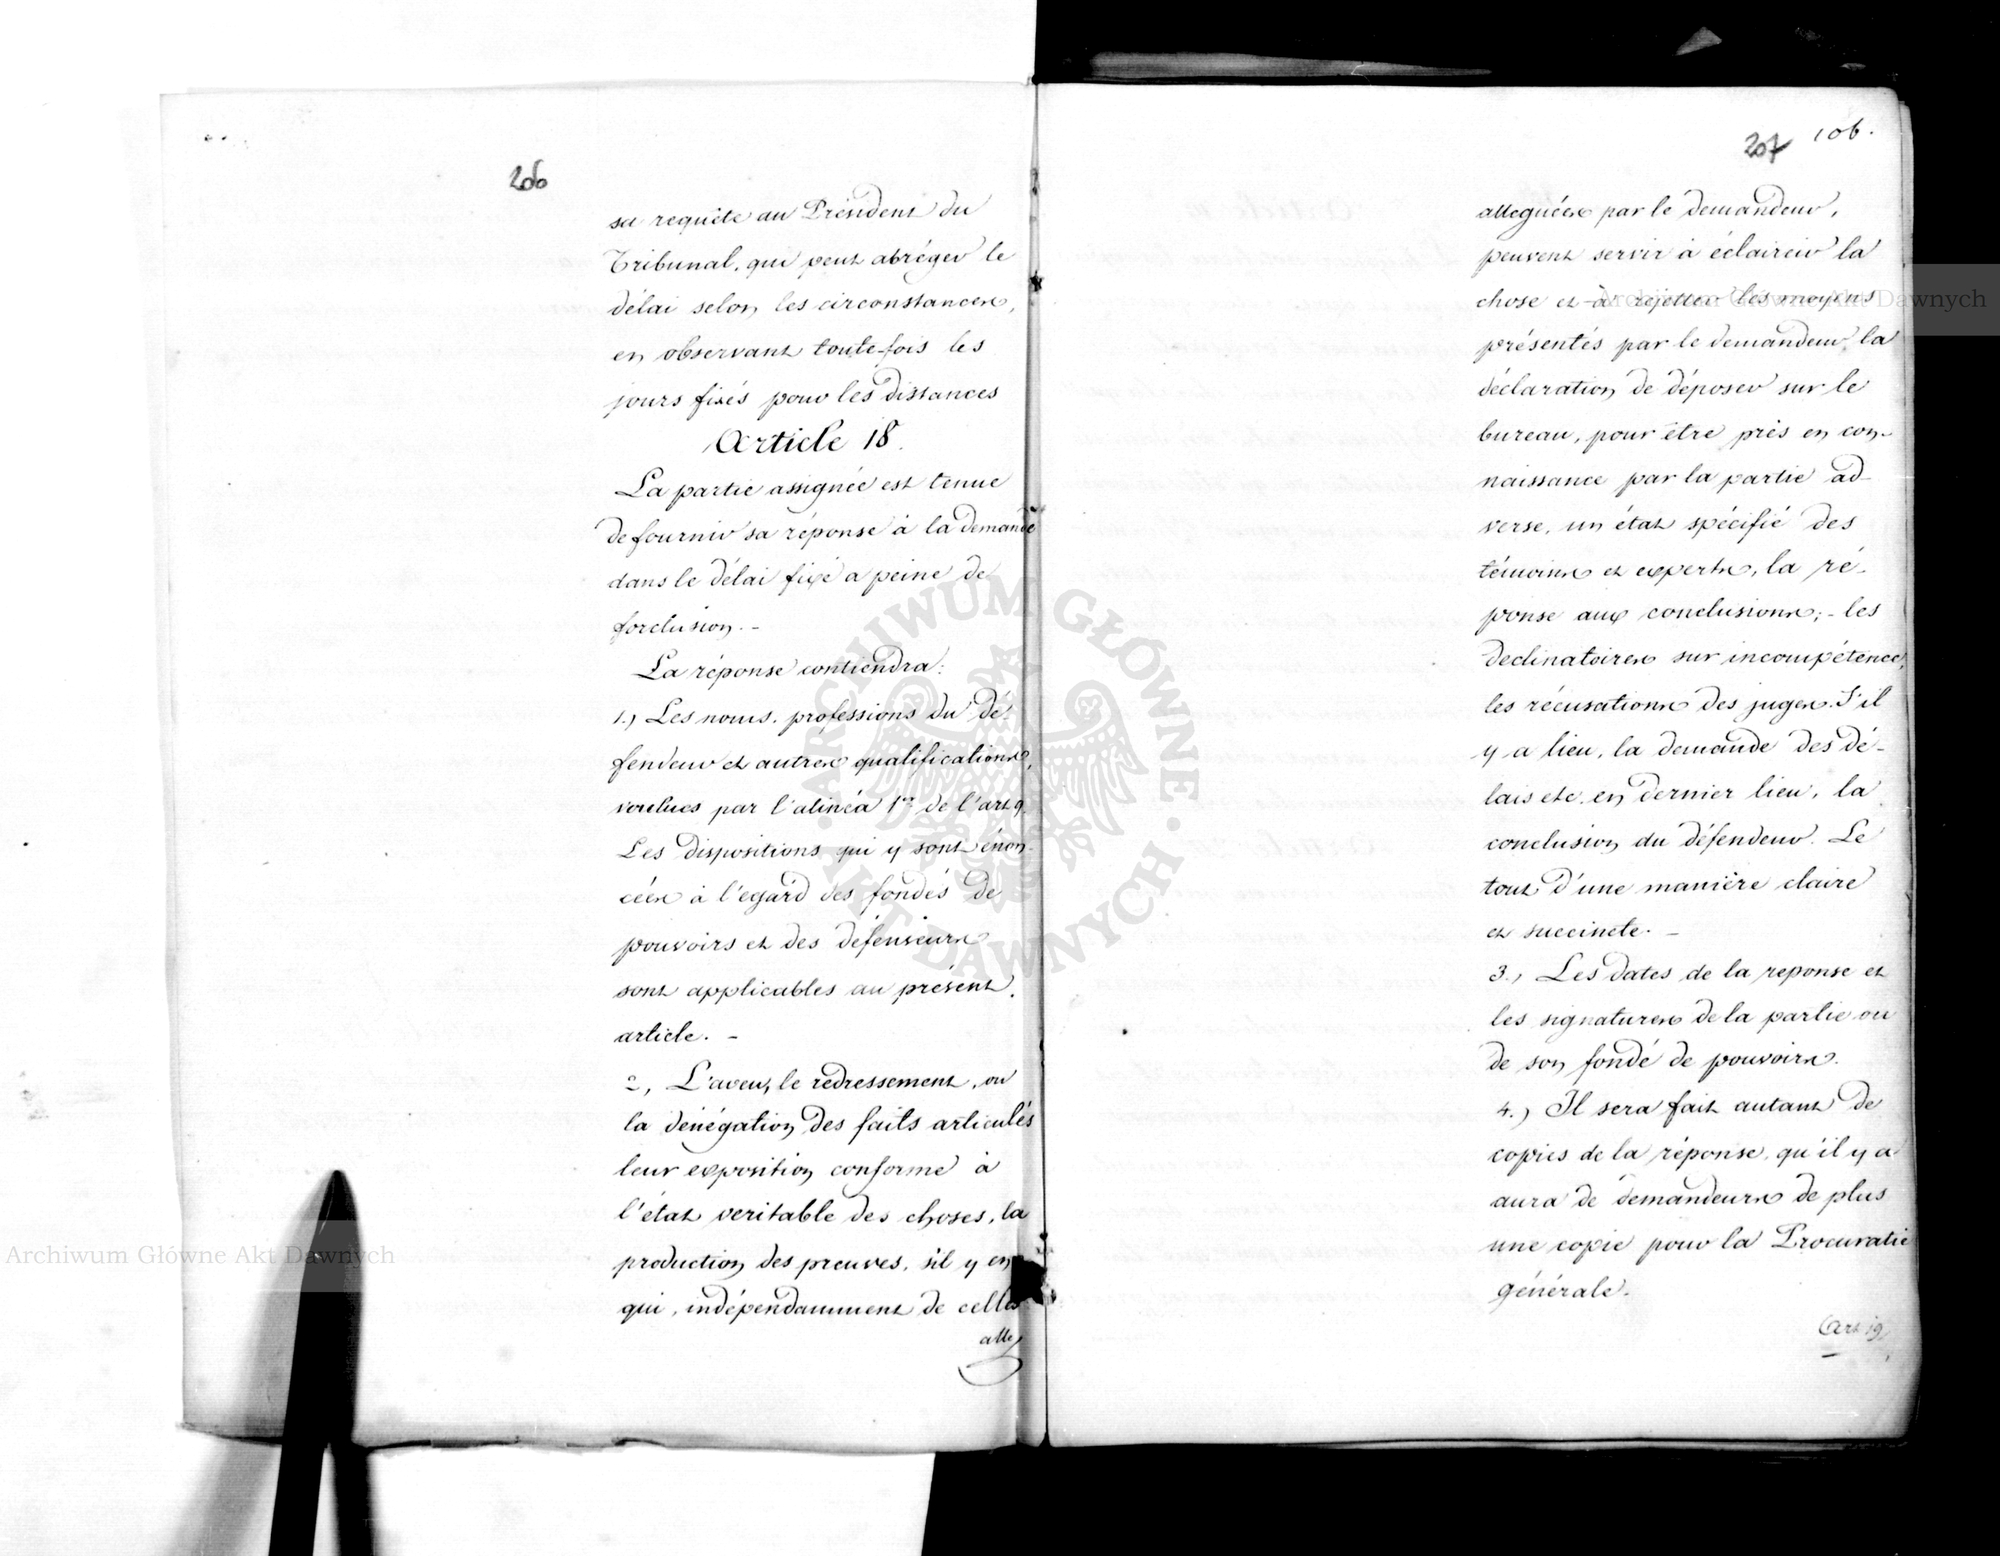 206
sa requête au Président du
Tribunal, qui peut abréger le
délai selon les circonstances,
en observant toute-fois les
jours fixés pour les distances
Article 18.
La partie assignée est tenue
de fournir sa réponse à la demande
dans le délai fixé a peine de
forclusion. -
La réponse contiendra:
1.) Les noms, professions du dé-
fendeur et autres qualifications,
voulues par l'alinéa 1er de l'art 9.
Les dispositions qui y sont énon-
cées à l'egard des fondés de
pouvoirs et des défenseurs
sont applicables au présent
article. -
2, L'aveu, le redressement, ou
la dénégation des faits articulés
leur exposition conforme à
l'état veritable des choses, la
production des preuves, s'il y en
qui, indépendamment de celles
alle
207 106.
alleguées par le demandeur,
peuvent servir à éclaircir la
chose et à rejetter les moyens
présentés par le demandeur, la
déclaration de déposer sur le
bureau, pour être pris en con-
naissance par la partie ad-
verse, un état spécifié des
témoins et experts, la ré-
ponse aux conclusions; - les
declinatoires sur incompétence,
les récusations des juges. S'il
y a lieu, la demande des dé-
lais etc. en dernier lieu, la
conclusion du défendeur. Le
tout d'une manière claire
et succincte. -
3., Les dates de la reponse et
les signatures de la partie ou
de son fondé de pouvoirs.
4.) Il sera fait autant de
copies de la réponse, qu'il y a
aura de demandeurs de plus
une copie pour la Procuratie
générale.
Art 19.
Archiwum Główne Akt Dawnych
Archiwum Główne Akt Dawnych
ARCHIWUM GŁÓWNE
AKT DAWNYCH